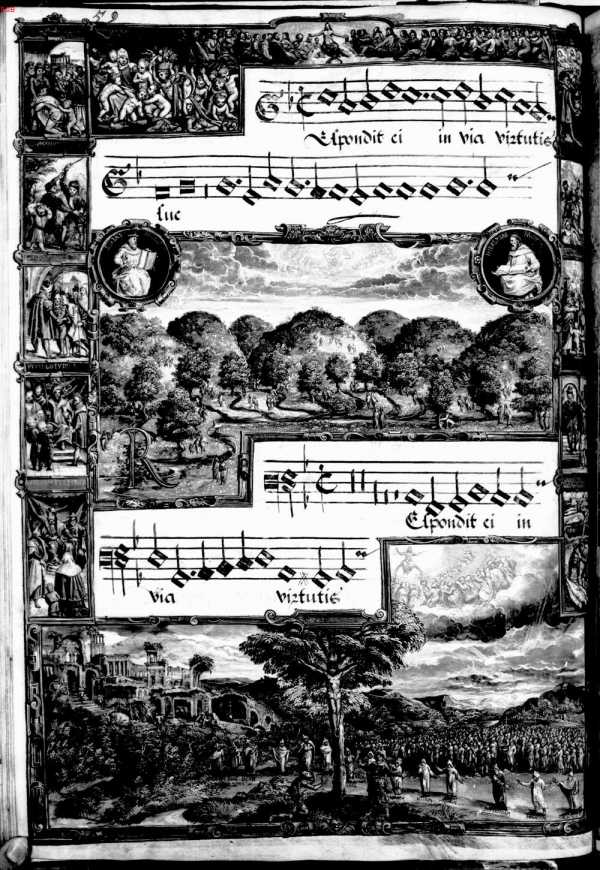 59
Espondit ei in via virtutis
suę
R
Espondit ei in
via virtutis